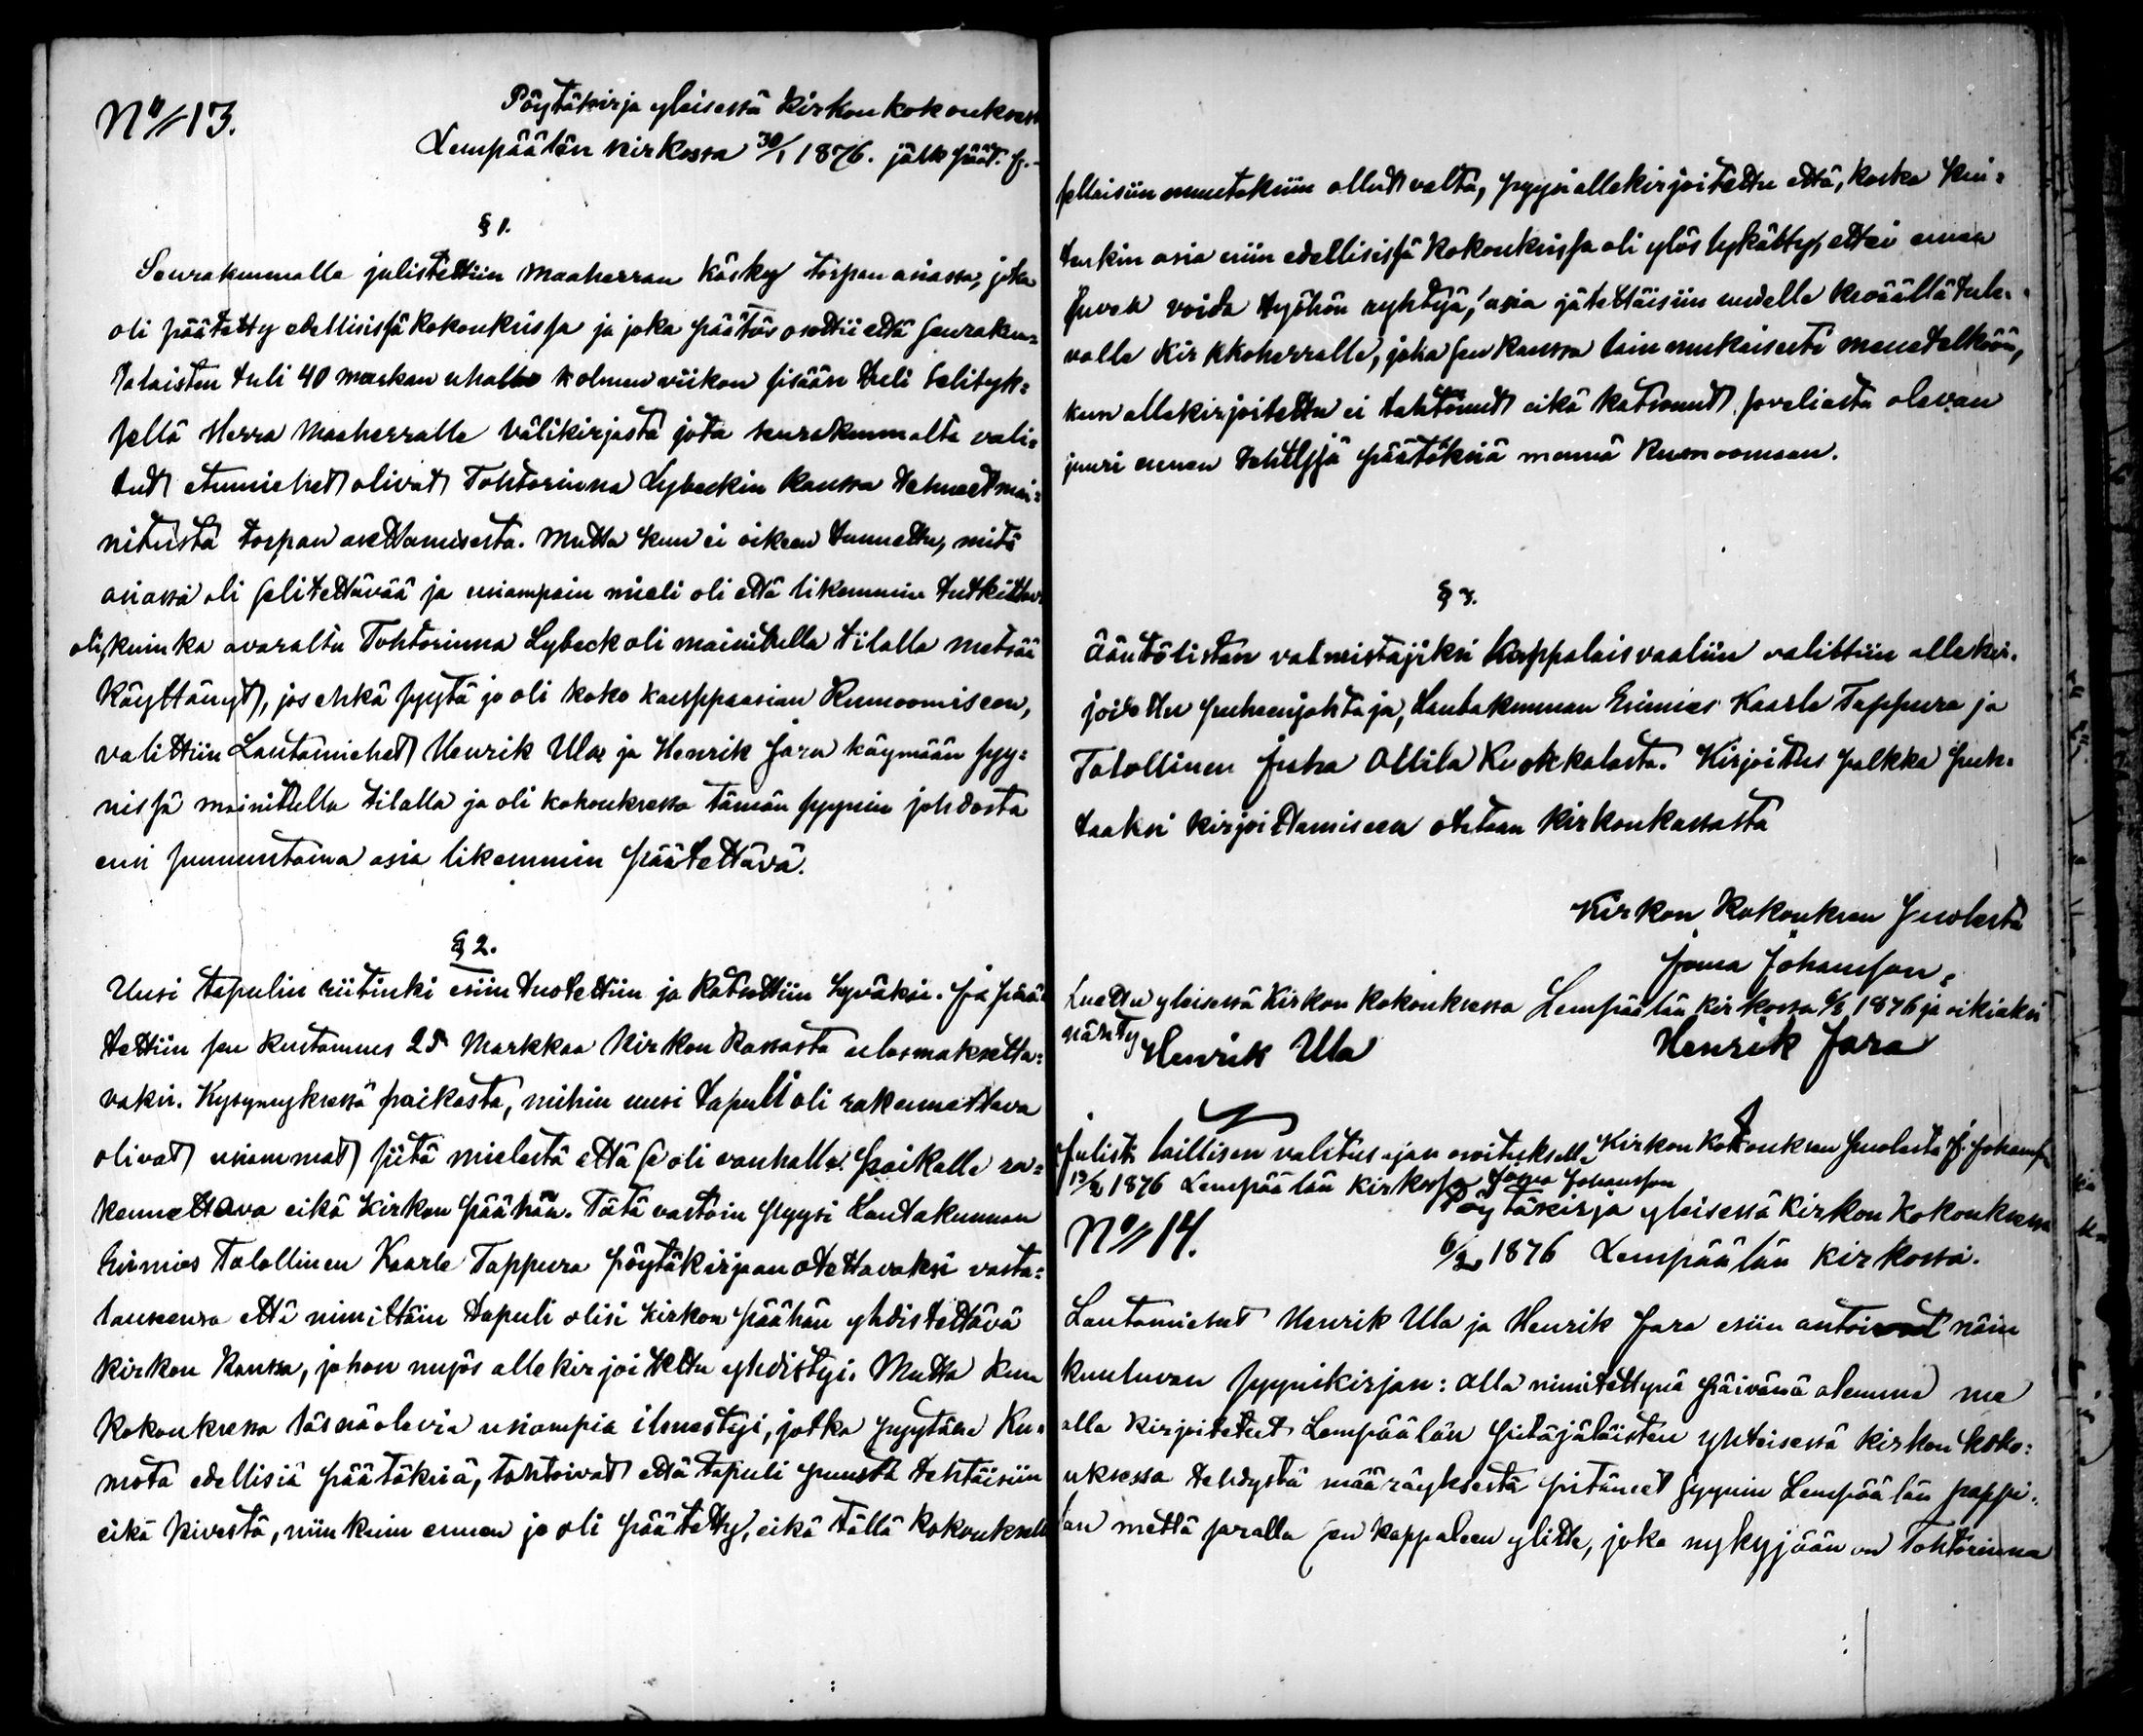 No 13.
Pöytäkirja yleisessä Kirkonkokouksessa
Lempäälän kirkossa 30/1 1876. jälk. päät. f.
§ 1.
Seurakunnalle julistettiin Maaherran käsky torpan asiassa, joka
oli päätetty edellisissä kokouksissa ja joka päätös osotti että seurakun=
talaisten tuli 40 markan uhalla kolmen viikon sisään tuli selityk=
sellä Herra Maaherralle välikirjasta jota seurakunnalta vali=
tut etumiehet olivat Tohtorinna Lybeckin kanssa tehneet mai=
nitusta torpan asettamisesta. Mutta kun ei oikeen tunnettu, mitä
asiassa oli selitettävää ja usiampain mieli oli että likemmin tutkittava
oli, kuinka avaralta Tohtorinna Lybeck oli mainitulla tilalla metsää
käyttänyt, jos ehkä syytä jo oli koko kauppaasian Kumoomiseen,
valittiin Lautamiehet Henrik Ula ja Henrik Jara käymään syy=
nissä mainitulla tilalla ja oli kokouksessa tämän syynin johdosta
ensi sunnuntaina asia likemmin päätettävä.
§ 2.
Uusi tapulin riitinki esiin tuotettiin ja katsottiin hyväksi. Ja pää=
tettiin sen kustannus 25 Markkaa Kirkon kassasta ulosmaksetta=
vaksi. Kysymyksessä paikasta, mihin uusi tapuli oli rakennettava
olivat usiammat siitä mielestä että se oli vanhalle paikalle ra=
kennettava eikä kirkon päähän. Tätä vastoin pyysi Lautakunnan
Esimies Talollinen Kaarle Tappura pöytäkirjaan otettavaksi vasta=
lauseensa että nimittäin tapuli olisi kirkon päähän yhdistettävä
kirkon kanssa, johon myös allekirjoitettu yhdistyi. Mutta kun
kokouksessa läsnäolevia usiampia ilmestyi, jotka pyytäen Ku=
mota edellisiä päätöksiä, tahtoivat että tapuli puusta tehtäisiin
eikä kivestä, niin kuin ennen jo oli päätetty, eikä tällä kokouksella
sellaisiin muutoksiin ollut valta, pyysi allekirjoitettu että, koska kui=
tenkin asia niin edellisissä kokouksissa oli ylös lykätty, ettei ennen
suvea voida työhön ryhtyä, asia jätettäisiin uudelle keväällä tule=
valle Kirkkoherralle, joka sen kanssa lain mukaisesti menetelköön,
kun allekirjoitettu ei tahtonut eikä katsonut soveliasta olevan
juuri ennen tehtyjä päätöksiä mennä Kumoomaan.
§ 3.
Ääntölistan valmistajiksi Kappalaisvaaliin valittiin alleki=
joitettu puheenjohtaja, Lautakunnan Esimies Kaarle Tappura ja
Talollinen Juha Ollila Kuokkalasta. Kirjoitus palkka puh=
taaksi kirjoittamiseen otetaan kirkonkassasta
Kirkon Kokouksen Puolesta
Joma Johansson.
Luettu yleisessä Kirkon kokouksessa Lempäälän kirkossa 6/2 1876 ja oikiaksi
nähty Henrik Ula Henrik Jara
Julist. laillisen valitus ajan osoituksella Kirkon Kokouksen puolesta J. Johansson
13/2 1876 Lempäälän kirkossa Joma Johansson
No 14.
Pöytäkirja yleisessä Kirkon Kokouksessa
6/2 1876 Lempäälän kirkossa.
Lautamiehet Henrik Ula ja Henrik Jara esiin antoivat näin
kuuluvan syynikirjan: alla nimitettynä päivänä olemme me
alla kirjoitetut Lempäälän Pitäjäläisten yhteisessä kirkon koko=
uksessa tehdystä määräyksestä pitäneet syynin Lempäälän pappi=
lan mettä saralla sen kappaleen ylitte, joka nykyjään on Tohtorinna